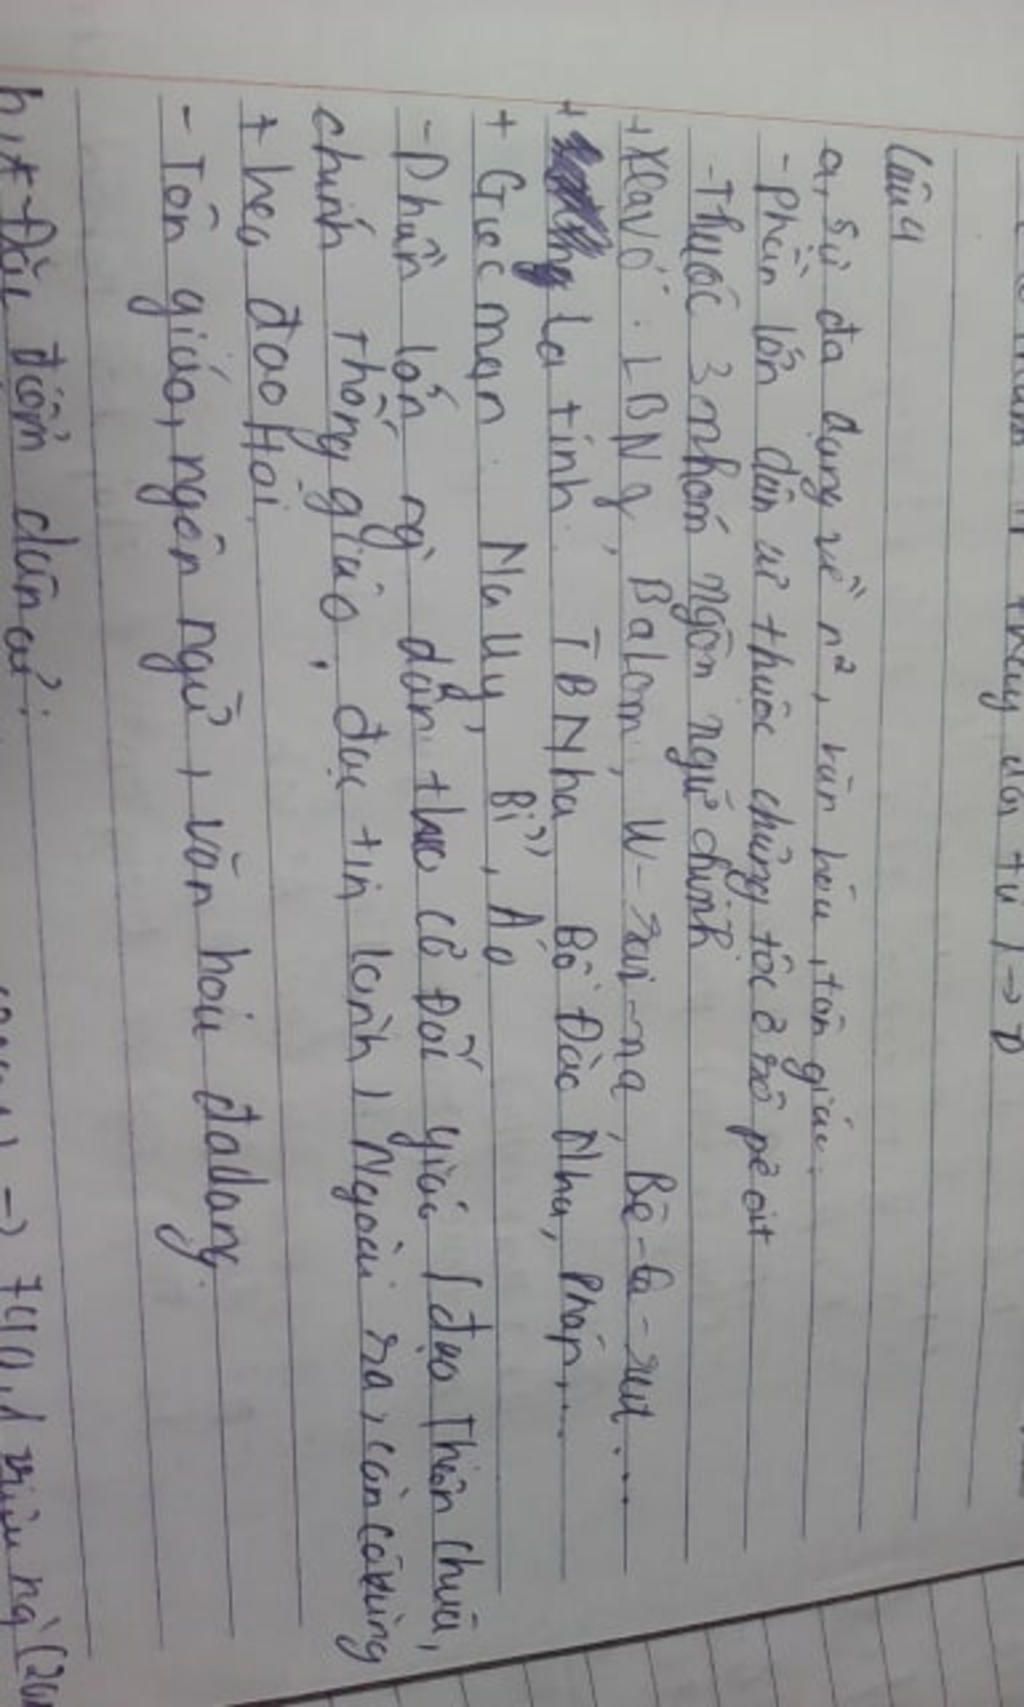 thay đổi từ 1 →
Câu 4
a, Sự đa dạng về n², văn hóa, tôn giáo.
- Phần lớn dân cư thuộc chủng tộc Ơ rô pê ôit
- Thuộc 3 nhóm ngôn ngữ chính
+ Xlavơ: LBNg, Balan, U-rai-na, Bê-la-rut...
+ La tinh: TBNha, Bồ Đào Nha, Pháp,...
+ Giecman: Na Uy, Bỉ, Áo
- Phần lớn ng dân theo cơ Đốc giáo (đạo Thiên chúa,
chính thống giáo, đạo tin lành) Ngoài ra, còn có vùng
theo đạo Hồi.
- Tôn giáo, ngôn ngữ, văn hóa đa dạng.
Đặc điểm dân cư:
→ 740, triệu ng